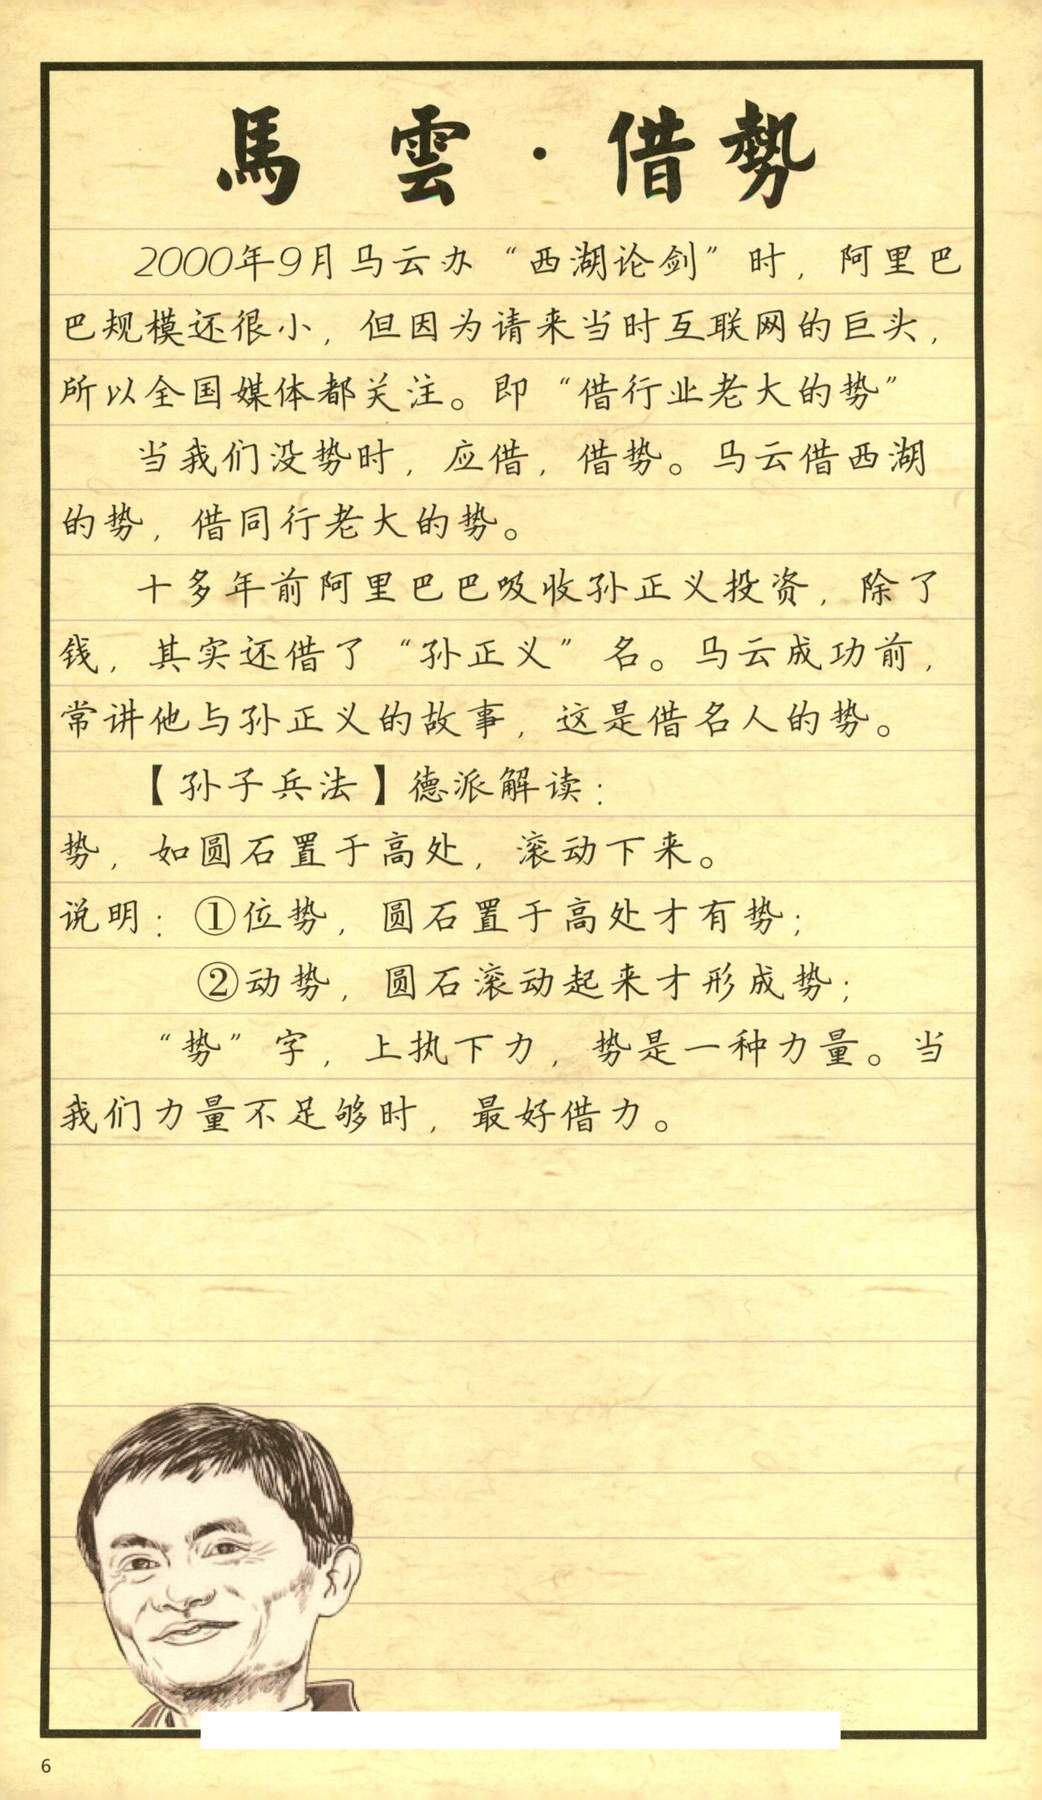 馬雲·借勢
2000年9月马云办“西湖论剑”时，阿里巴
巴规模还很小，但因为请来当时互联网的巨头，
所以全国媒体都关注。即“借行业老大的势”
当我们没势时，应借，借势。马云借西湖
的势，借同行老大的势。
十多年前阿里巴巴吸收孙正义投资，除了
钱，其实还借了“孙正义”名。马云成功前，
常讲他与孙正义的故事，这是借名人的势。
【孙子兵法】德派解读：
势，如圆石置于高处，滚动下来。
说明：①位势，圆石置于高处才有势；
②动势，圆石滚动起来才形成势；
“势”字，上执下力，势是一种力量。当
我们力量不足够时，最好借力。
6